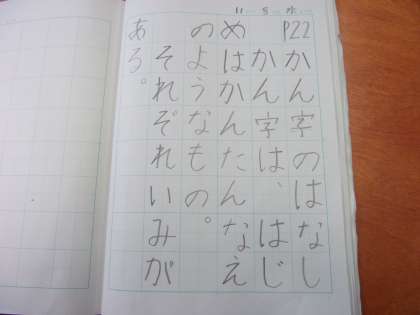 11 5 水
P22
かん字のはなし
かん字は、はじ
めはかんたんなえ
のようなもの。
それぞれいみが
ある。